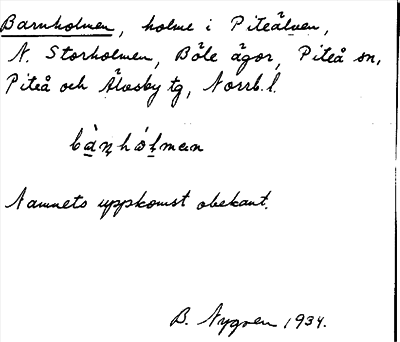 Barnholmen, holme i Piteälven,
N. Storholmen, Böle ägor, Piteå sn,
Piteå och Älvsby tg, Norrb. l.
Namnets uppkomst obekant.
B. Nygren 1934.